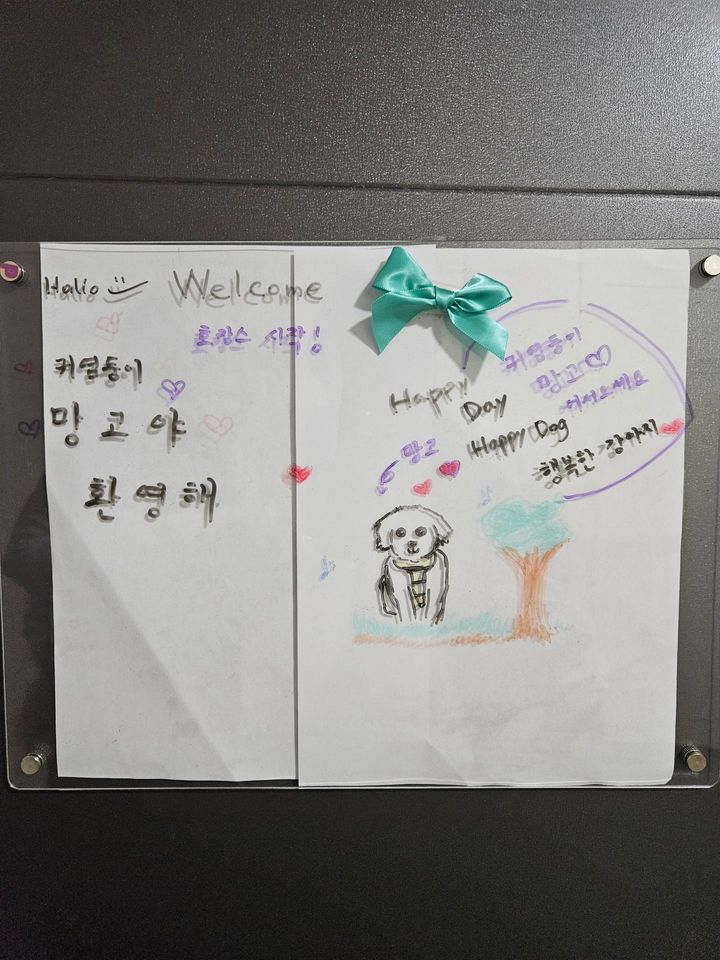 Hallo Welcome
호캉스 시작!
귀염둥이
망고야
환영해
귀염둥이
망고♡
어서오세요
Happy
Day
Happy Dog
행복한 강아지
망고